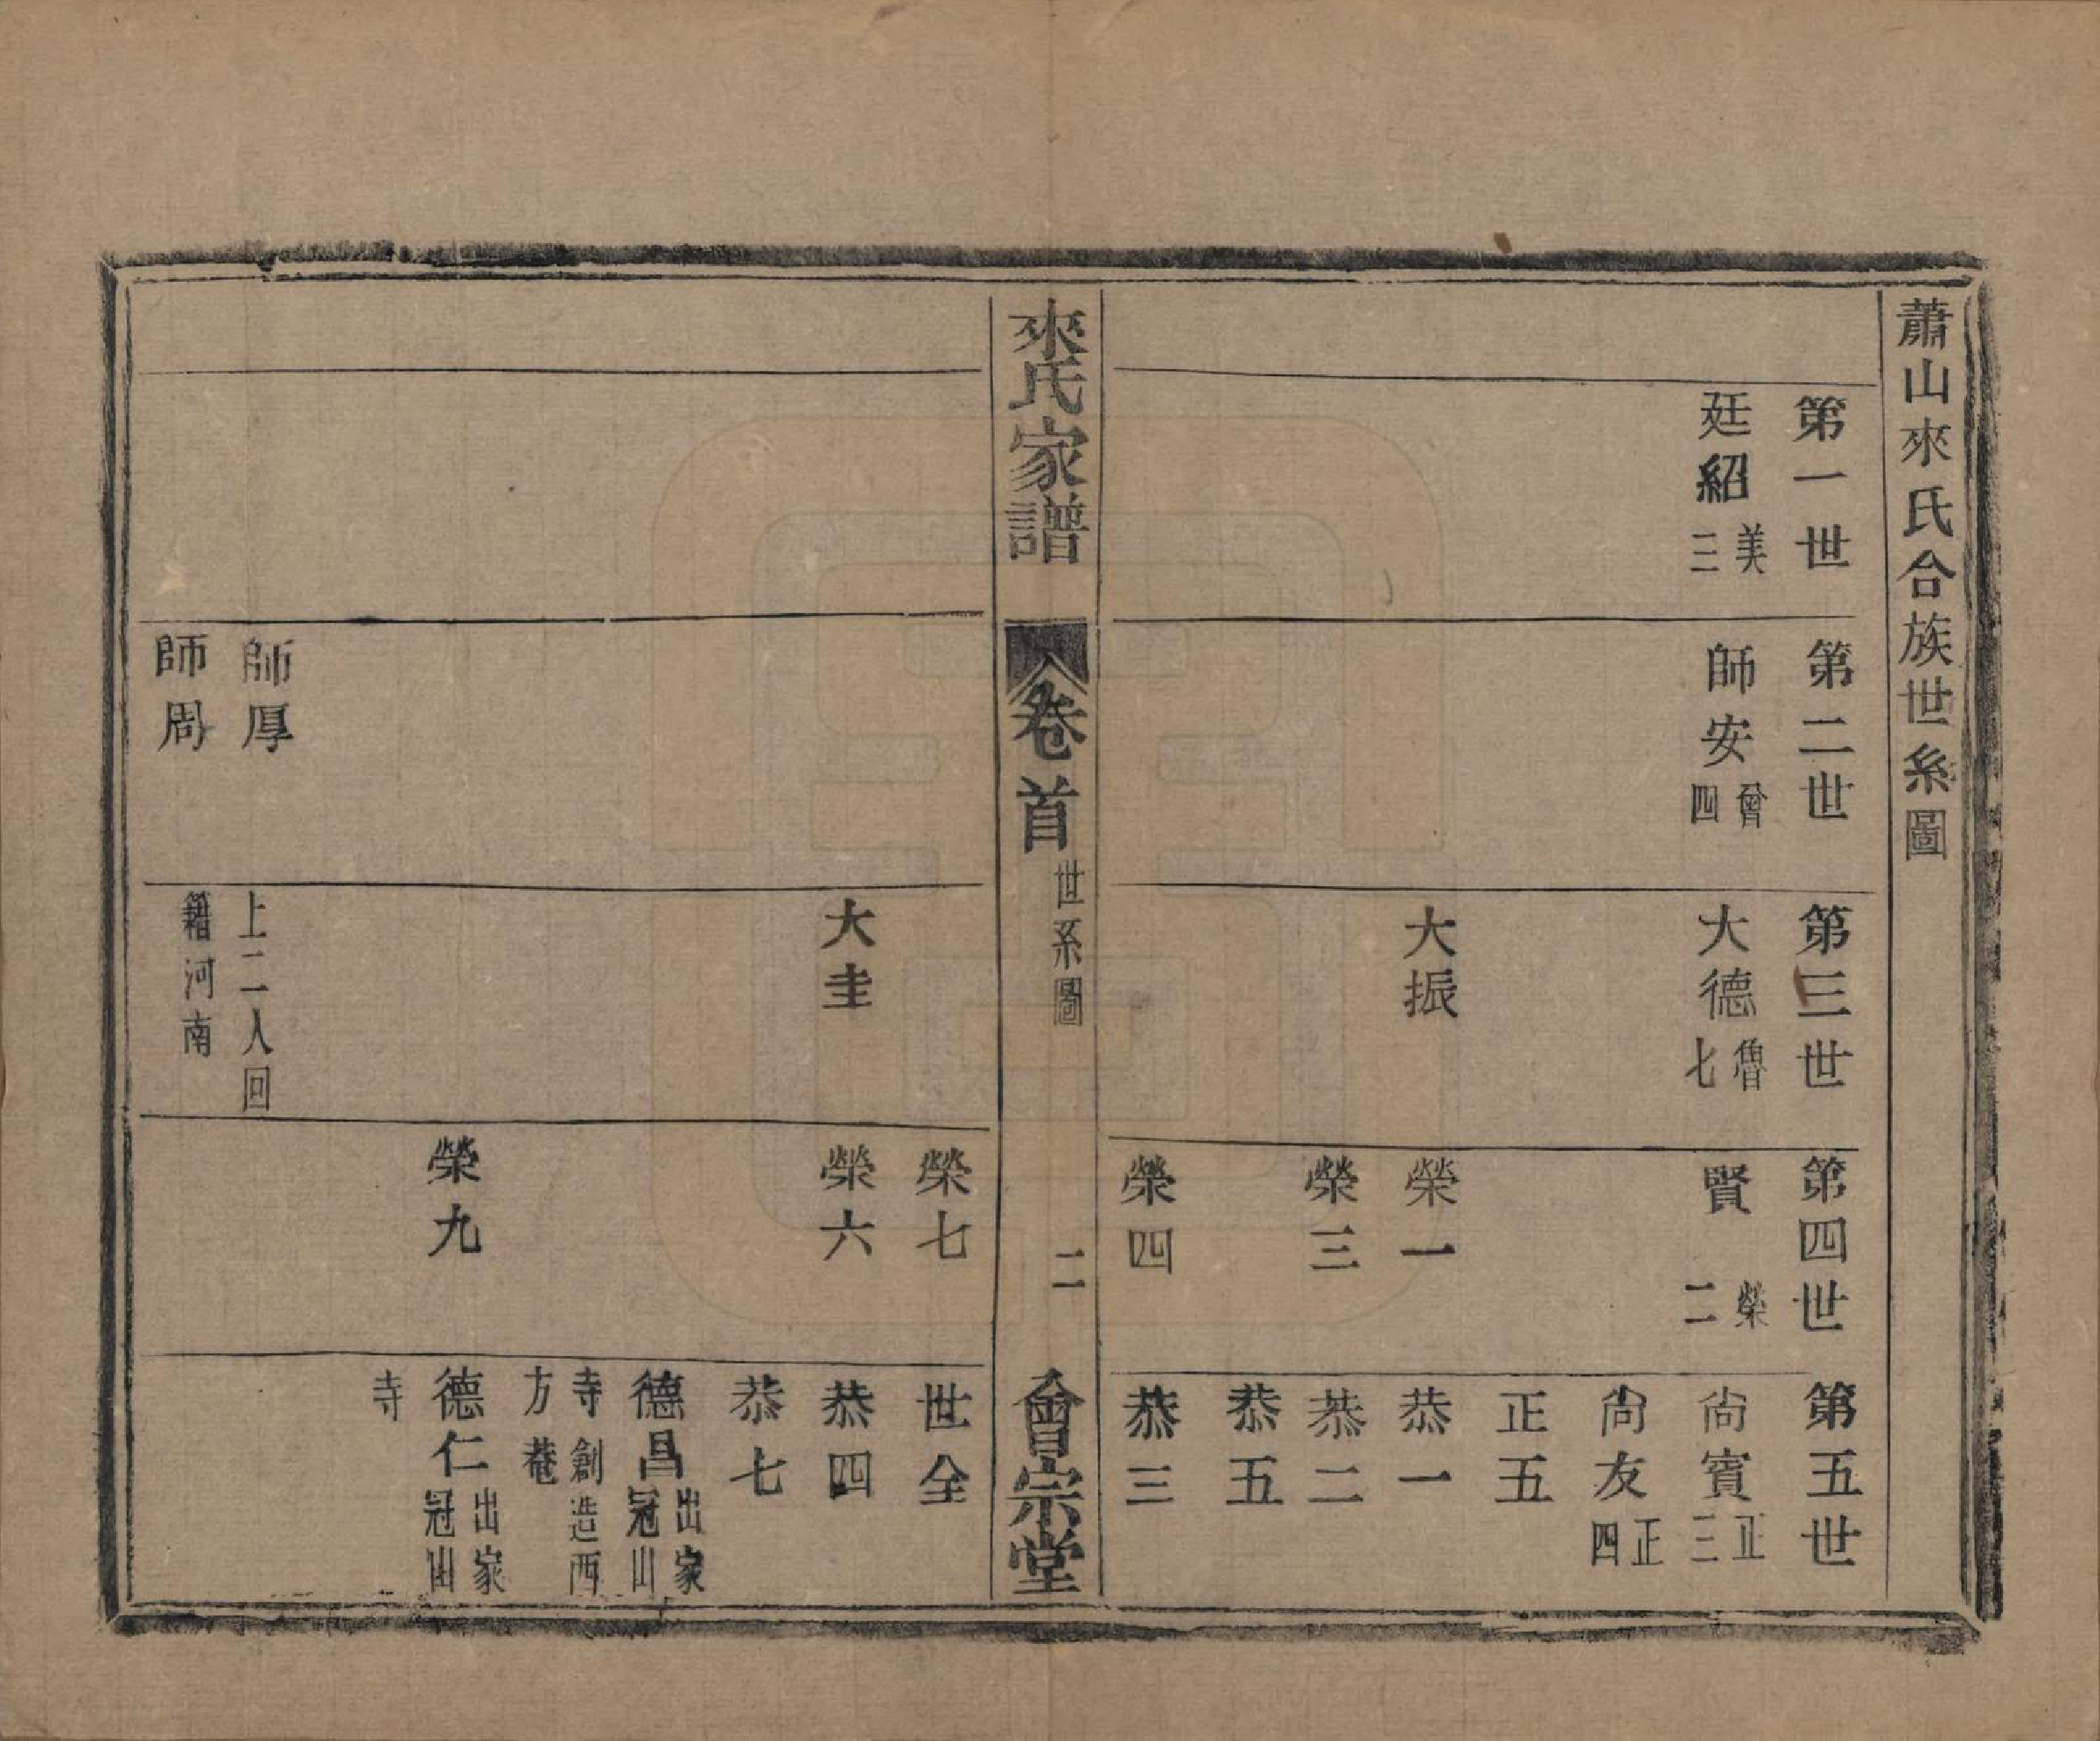 蕭山來氏合族世系圖
第一世
廷紹 美二
第二世
師安 曾四
第三世
大德 魯七
大振
第四世
賢 榮二
榮一
榮三
榮四
第五世
尙賓 正三
尙友 正四
正五
恭一
恭二
恭五
恭三
來氏家譜
卷首
世系圖
二
會宗堂
師厚
師周
大圭
上二人回
籍河南
榮七
榮六
榮九
世全
恭四
恭七
德昌 出家冠山
寺創造西
方菴
德仁 出家冠山
寺